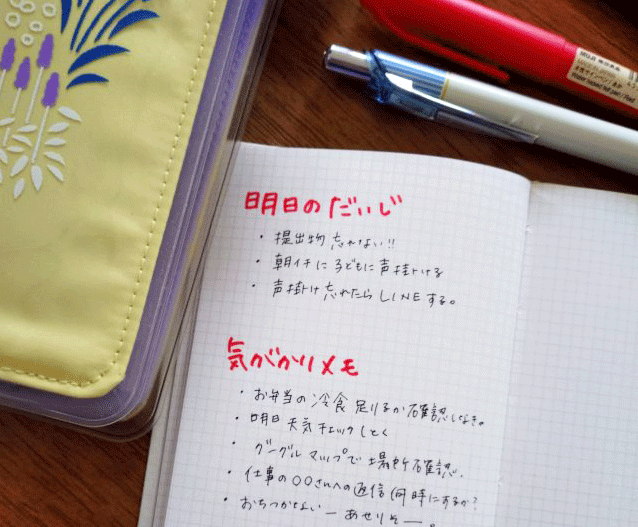 明日のだいじ
・提出物 忘れない!!
・朝イチに 子どもに声掛ける
・声掛け 忘れたら LINEする。
気がかりメモ
・お弁当の冷食 足りるか確認しなき。
・明日 天気チェックしとく
・グーグルマップで 場所確認.
・仕事の○○さんへの返信 何時にするか?
・おちつかないー あせりそー。
MUJI 無印良品